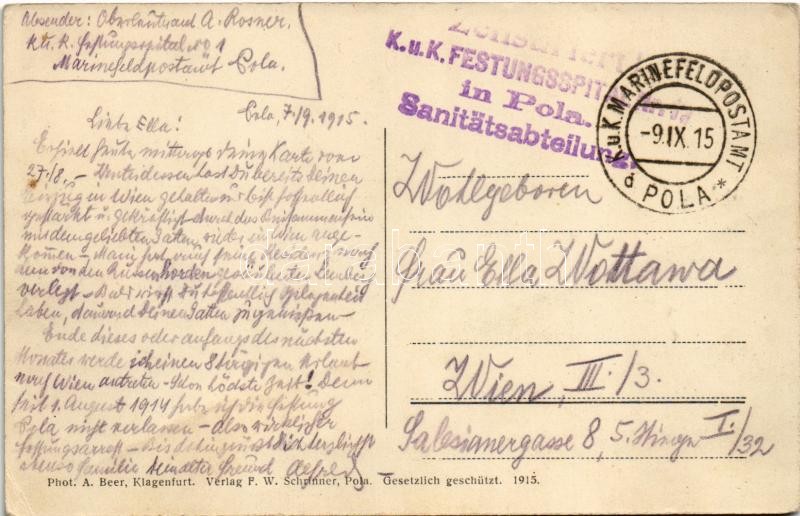 Absender: Oberleutnant A. Rosner.
k. u. k. Festungsspital No 1
Marinefeldpostamt Pola.
Zensuriert
K.u.K. FESTUNGSSPITAL
in Pola.
Sanitätsabteilung.
K.u.K. MARINEFELDPOSTAMT
-9.IX.15
a POLA *
Pola, 7/9. 1915.
Liebe Ella!
Erhielt heute mittags Deine Karte vom
27./8. – Unterdessen hast Du bereits Deinen
Einzug in Wien gehalten u. bist hoffentlich
gestärkt u. gekräftigt durch das Zusammensein
mit dem geliebten Gatten, wieder in Wien ange-
kommen –
von den Russenhorden gesäuberten
verlegt – Bald wirst Du hoffentlich Gelegenheit
haben, Deinen Gatten zu
Ende dieses oder anfangs des nächsten
Monates werde ich einen 8 tägigen Urlaub
nach Wien antreten – Schon höchste Zeit! Denn
seit 1. August 1914 habe ich die Festung
Pola nicht verlassen – also wirklicher
Festungsarrest – Bis dahin grüsst Dich herzlichst
ebenso Familie Freund Alfred
Wohlgeboren
Frau Ella Wottawa
Wien, III./3.
Salesianergasse 8, 5. Stiege I./32
Phot. A. Beer, Klagenfurt. Verlag F. W. Schrinner, Pola. Gesetzlich geschützt. 1915.